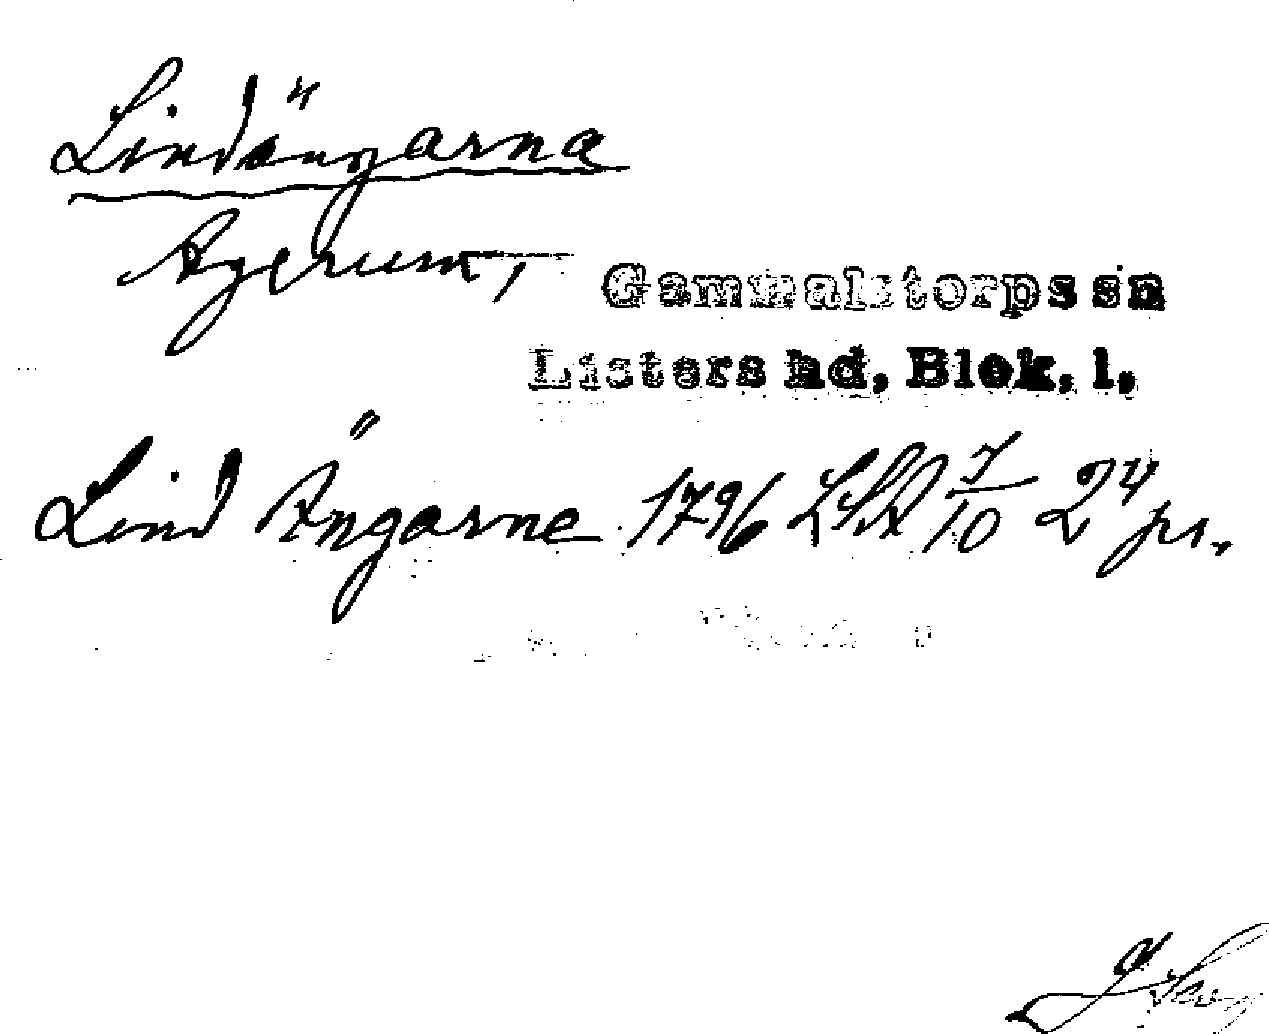 Lindängarna
Agerum,
Gammalstorps sn
Listers hd, Blek. l.
Lind Ängarne 1796 LSA 7/10 24 ps.